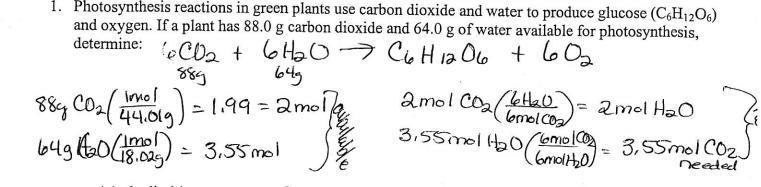 1. Photosynthesis reactions in green plants use carbon dioxide and water to produce glucose (C₆H₁₂O₆)
and oxygen. If a plant has 88.0 g carbon dioxide and 64.0 g of water available for photosynthesis,
determine: 6CO2 + 6H2O → C6H12O6 + 6O2
88g 64g
88g CO2 (1mol / 44.01g) = 1.99 = 2mol
64g H2O (1mol / 18.02g) = 3.55mol
available
2mol CO2 (6H2O / 6molCO2) = 2mol H2O
3.55mol H2O (6molCO2 / 6molH2O) = 3.55mol CO2
needed